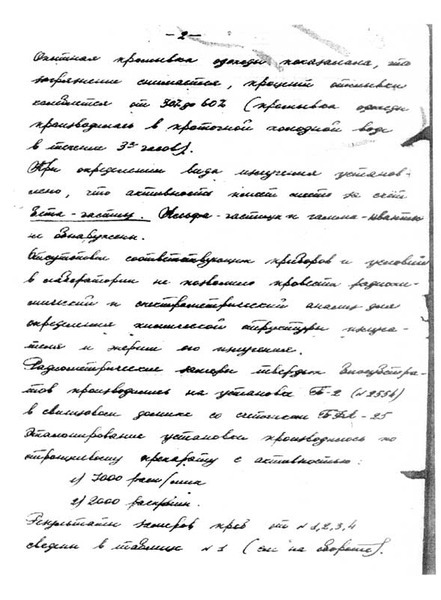 — 2 —
Опытная промывка одежды показала, что
загрязнение снимается, процент отмывки
колеблется от 30% до 60% (промывка одежды
производилась в проточной холодной воде
в течение 3х часов).
При определении вида излучения установ-
лено, что активность имеет место за счёт
Бета-частиц. Альфа-частиц и гамма-квантов
не обнаружены.
Отсутствие соответствующих приборов и условий
в лаборатории не позволило провести радиохи-
мический и спектрометрический анализ для
определения химической структуры излуча-
теля и энергии его излучения.
Радиометрические замеры твёрдых биосубстра-
тов производились на установке Б-2 (№2554)
в свинцовом домике со счётчиком БФЛ-25
Эталонирование установки производилось по
стронциевому препарату с активностью:
1) 1000 расп/мин
2) 2000 расп/мин.
Результаты замеров проб от №1,2,3,4
сведены в таблицу №1 (см на обороте).